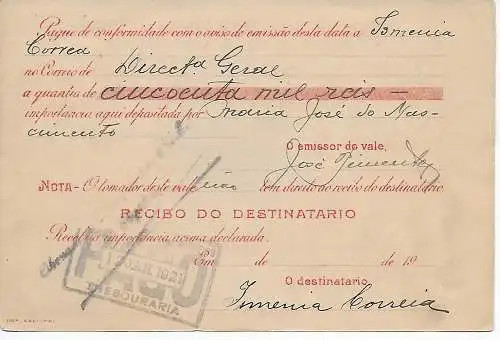 Pague de conformidade com o aviso de emissão desta data a Ismenia
Correa
no Correio de Directa. Geral
a quantia de cincoenta mil reis —
importancia aqui depositada por Maria José do Nas-
cimento
O emissor do vale,
José Pimentel
NOTA - O tomador deste vale não tem direito ao recibo do destinatario.
RECIBO DO DESTINATARIO
Recebi a importancia acima declarada.
Em de de 19
PAGO
JAN 1923
THESOURARIA
O destinatario
Ismenia Correia